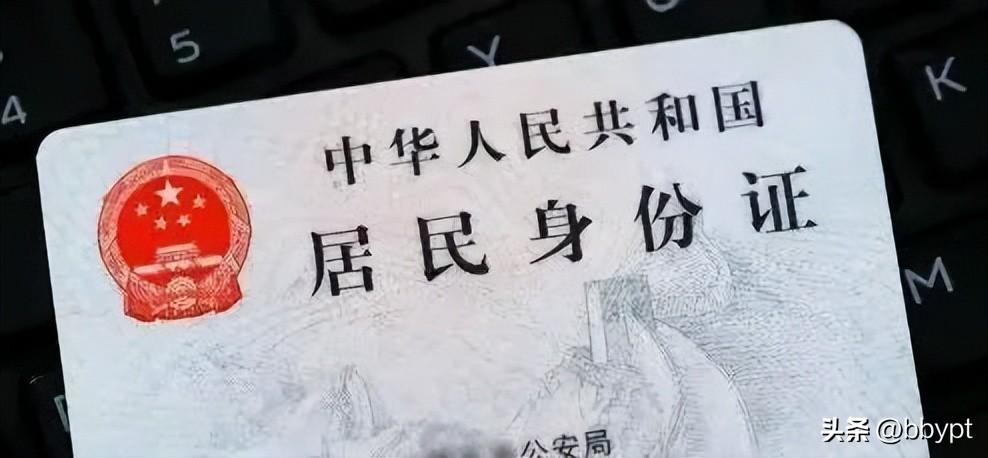 5
Y
4
K
中华人民共和国
居民身份证
M
公安局
头条 @bbypt